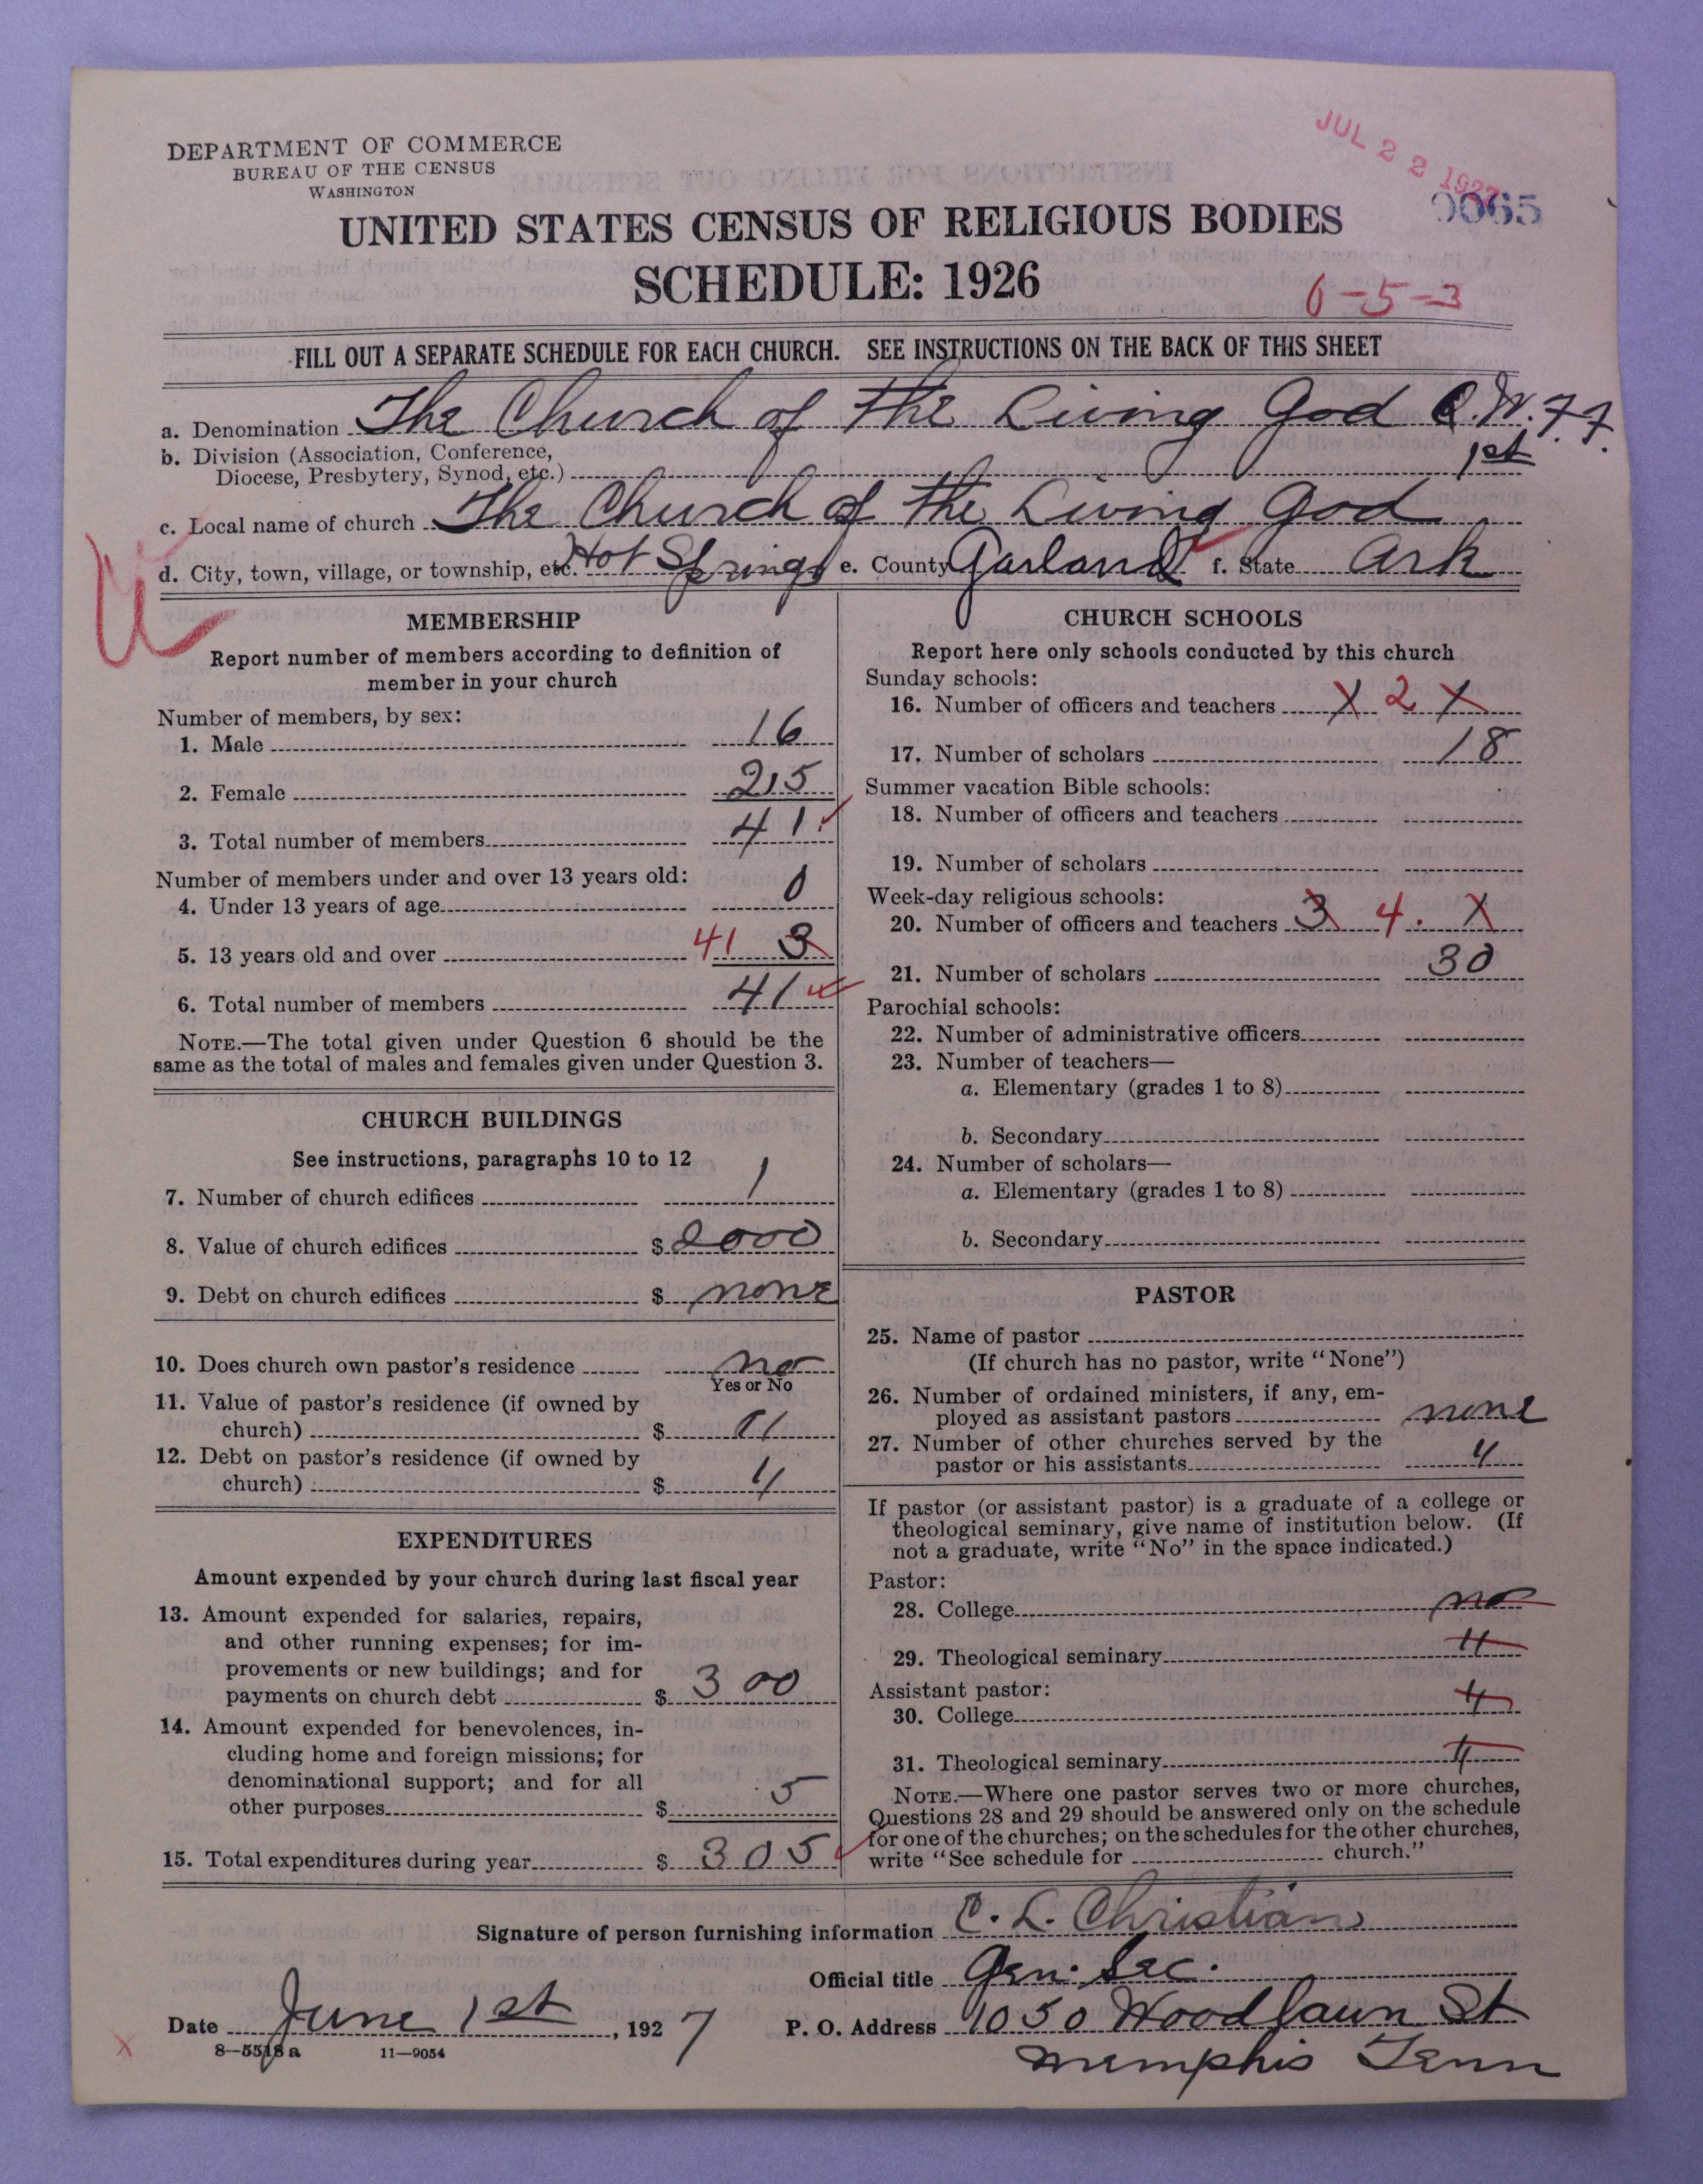 DEPARTMENT OF COMMERCE
BUREAU OF THE CENSUS
WASHINGTON
JUL 22 1927
0065
UNITED STATES CENSUS OF RELIGIOUS BODIES
SCHEDULE: 1926
6-5-3
FILL OUT A SEPARATE SCHEDULE FOR EACH CHURCH. SEE INSTRUCTIONS ON THE BACK OF THIS SHEET
a. Denomination The Church of the Living God C.W.F.F.
b. Division (Association, Conference,
Diocese, Presbytery, Synod, etc.) 1st
c. Local name of church The Church of the Living God
d. City, town, village, or township, etc. Hot Springs e. County Garland f. State Ark
MEMBERSHIP
Report number of members according to definition of
member in your church
Number of members, by sex:
1. Male 16
2. Female 25
3. Total number of members 41
Number of members under and over 13 years old:
4. Under 13 years of age 0
5. 13 years old and over 41 3
6. Total number of members 41
NOTE.—The total given under Question 6 should be the
same as the total of males and females given under Question 3.
CHURCH BUILDINGS
See instructions, paragraphs 10 to 12
7. Number of church edifices 1
8. Value of church edifices $ 2000
9. Debt on church edifices $ none
10. Does church own pastor's residence no
Yes or No
11. Value of pastor's residence (if owned by
church) $ 11
12. Debt on pastor's residence (if owned by
church) $ 4
EXPENDITURES
Amount expended by your church during last fiscal year
13. Amount expended for salaries, repairs,
and other running expenses; for im-
provements or new buildings; and for
payments on church debt $ 300
14. Amount expended for benevolences, in-
cluding home and foreign missions; for
denominational support; and for all
other purposes $ 5
15. Total expenditures during year $ 305
CHURCH SCHOOLS
Report here only schools conducted by this church
Sunday schools:
16. Number of officers and teachers X 2 X
17. Number of scholars 18
Summer vacation Bible schools:
18. Number of officers and teachers
19. Number of scholars
Week-day religious schools:
20. Number of officers and teachers 3 4. X
21. Number of scholars 30
Parochial schools:
22. Number of administrative officers
23. Number of teachers—
a. Elementary (grades 1 to 8)
b. Secondary
24. Number of scholars—
a. Elementary (grades 1 to 8)
b. Secondary
PASTOR
25. Name of pastor
(If church has no pastor, write "None")
26. Number of ordained ministers, if any, em-
ployed as assistant pastors none
27. Number of other churches served by the
pastor or his assistants 4
If pastor (or assistant pastor) is a graduate of a college or
theological seminary, give name of institution below. (If
not a graduate, write "No" in the space indicated.)
Pastor:
28. College no
29. Theological seminary 11
Assistant pastor:
30. College 11
31. Theological seminary 11
NOTE.—Where one pastor serves two or more churches,
Questions 28 and 29 should be answered only on the schedule
for one of the churches; on the schedules for the other churches,
write "See schedule for church."
Signature of person furnishing information C. L. Christian
Official title Gen. Sec.
Date June 1st, 1927
P. O. Address 1050 Woodlawn St
Memphis Tenn
8-5518a 11-9054